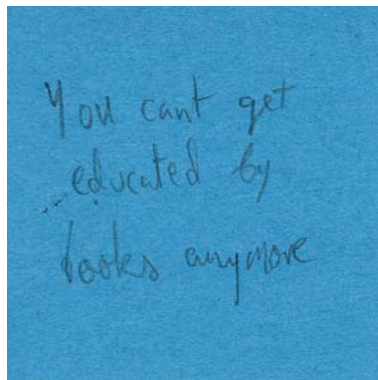 You cant get
educated by
books anymore